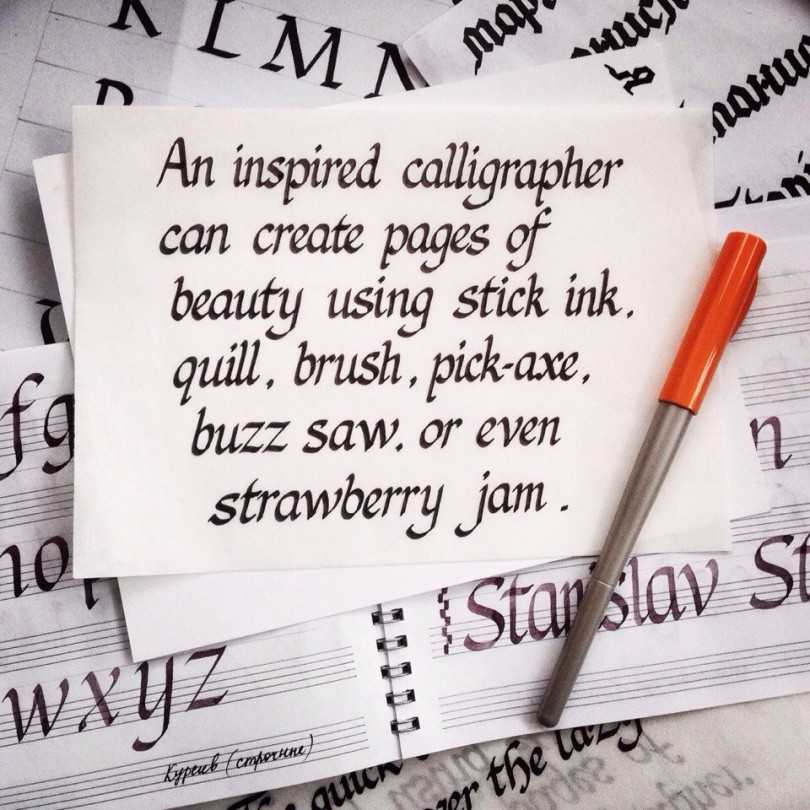 K L M N
An inspired calligrapher
can create pages of
beauty using stick ink.
quill, brush, pick-axe,
buzz saw. or even
strawberry jam.
fg
wxyz
Stanislav St
Курсив (строчные)
quick
the lazy